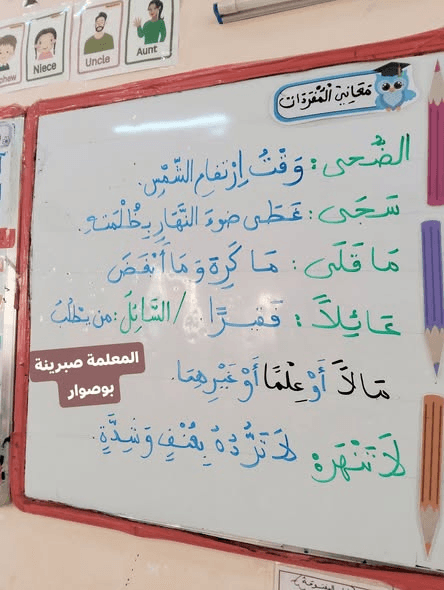 Niece
Uncle
Aunt
مَعَانِي الْمُفْرَدَات
الضُّحَى: وَقْتُ اِرْتِفَاعِ الشَّمْسِ.
سَجَى: غَطَى ضوءَ النَّهَارِ بِظُلْمَتِهِ.
مَا قَلَى: مَا كَرِهَ وَ مَا أَبْغَضَ
عَائِلاً: فَقِيرًا / السَّائِلَ: من يَطْلُبُ
مَالاً أَوْ عِلْمًا أَوْ غَيْرِهِمَا.
لَا تَنْهَرْهُ لَا تَرُدُّهُ بِعُنْفٍ وَ شِدَّةٍ.
المعلمة صبرينة
بوصوار